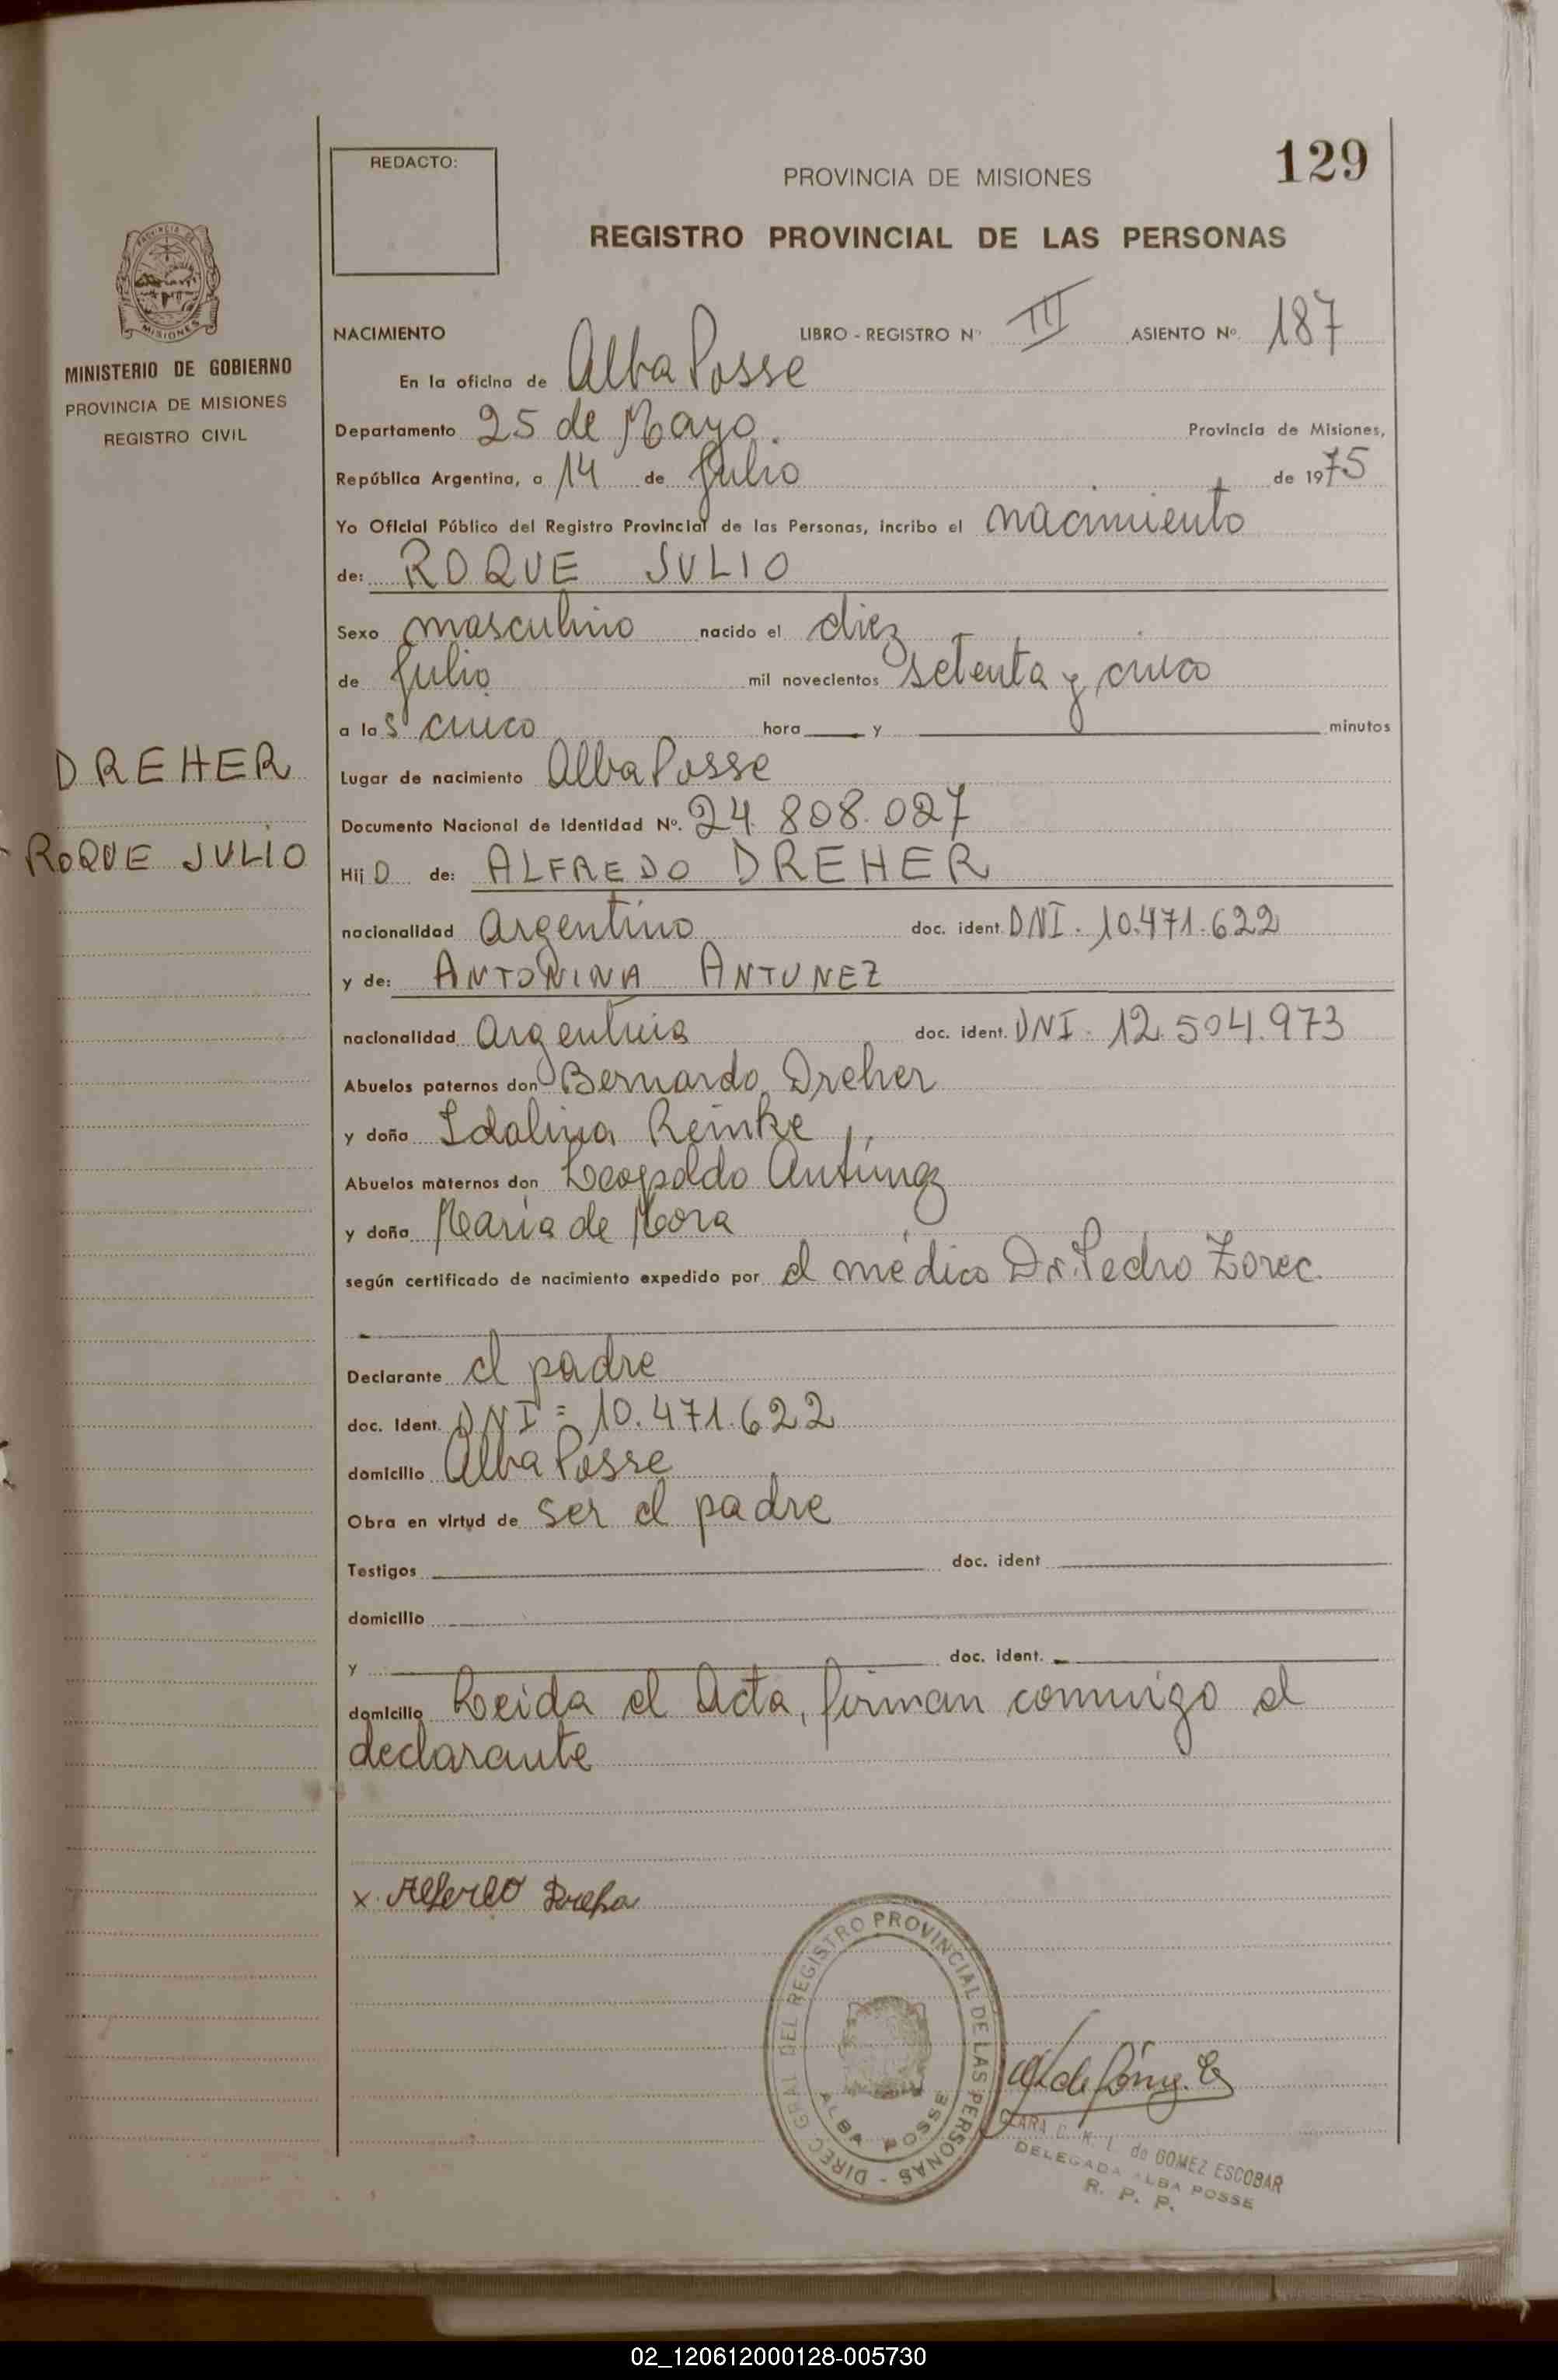 REDACTO:
129
PROVINCIA DE MISIONES
REGISTRO PROVINCIAL DE LAS PERSONAS
PROVINCIA DE
MISIONES
MINISTERIO DE GOBIERNO
PROVINCIA DE MISIONES
REGISTRO CIVIL
DREHER
ROQUE JULIO
NACIMIENTO LIBRO - REGISTRO Nº III ASIENTO Nº 187
En la oficina de Alba Posse
Departamento 25 de Mayo. Provincia de Misiones,
República Argentina, a 14 de Julio de 1975
Yo Oficial Público del Registro Provincial de las Personas, incribo el nacimiento
de: ROQUE JULIO
Sexo masculino nacido el diez
de Julio mil novecientos setenta y cinco
a las cinco hora y minutos
Lugar de nacimiento Alba Posse
Documento Nacional de Identidad Nº. 24.808.027
Hijo de: ALFREDO DREHER
nacionalidad Argentino doc. ident. DNI. 10.471.622
y de: ANTONINA ANTUNEZ
nacionalidad Argentina doc. ident. DNI. 12.504.973
Abuelos paternos don Bernardo Dreher
y doña Idalina Reinke
Abuelos maternos don Leopoldo Antúnez
y doña María de Mora
según certificado de nacimiento expedido por el médico Dr. Pedro Zorec.
Declarante el padre
doc. Ident. DNI = 10.471.622
domicilio Alba Posse
Obra en virtud de ser el padre
Testigos doc. ident
domicilio
y doc. ident.
domicilio Leida el Acta, firman conmigo el
declarante
x Alfredo Dreher
DIREC GRAL DEL REGISTRO PROVINCIAL DE LAS PERSONAS -
ALBA POSSE
CLARA C. K. L. de GOMEZ ESCOBAR
DELEGADA ALBA POSSE
R. P. P.
02_120612000128-005730